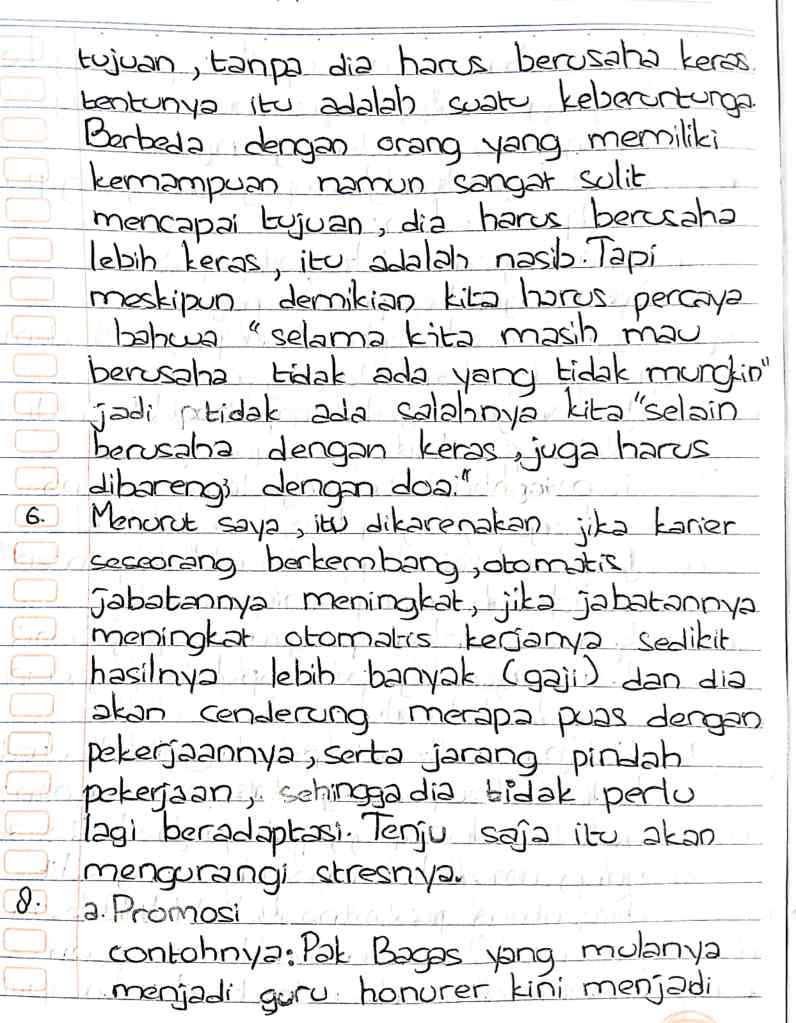 tujuan, tanpa dia harus berusaha keras.
tentunya itu adalah suatu keberuntunga.
Berbeda dengan orang yang memiliki
kemampuan namun sangat sulit
mencapai tujuan, dia harus berusaha
lebih keras, itu adalah nasib. Tapi
meskipun demikian kita harus percaya
bahwa "selama kita masih mau
berusaha tidak ada yang tidak mungkin"
jadi tidak ada salahnya kita "selain
berusaha dengan keras, juga harus
dibarengi dengan doa."
6. Menurut saya, itu dikarenakan jika karier
seseorang berkembang, otomatis
jabatannya meningkat, jika jabatannya
meningkat otomatis kerjanya sedikit
hasilnya lebih banyak (gaji) dan dia
akan cenderung merapa puas dengan
pekerjaannya, serta jarang pindah
pekerjaan, sehingga dia tidak perlu
lagi beradaptasi. Tenju saja itu akan
mengurangi stresnya.
8. a. Promosi
contohnya: Pak Bagas yang mulanya
menjadi guru honurer kini menjadi